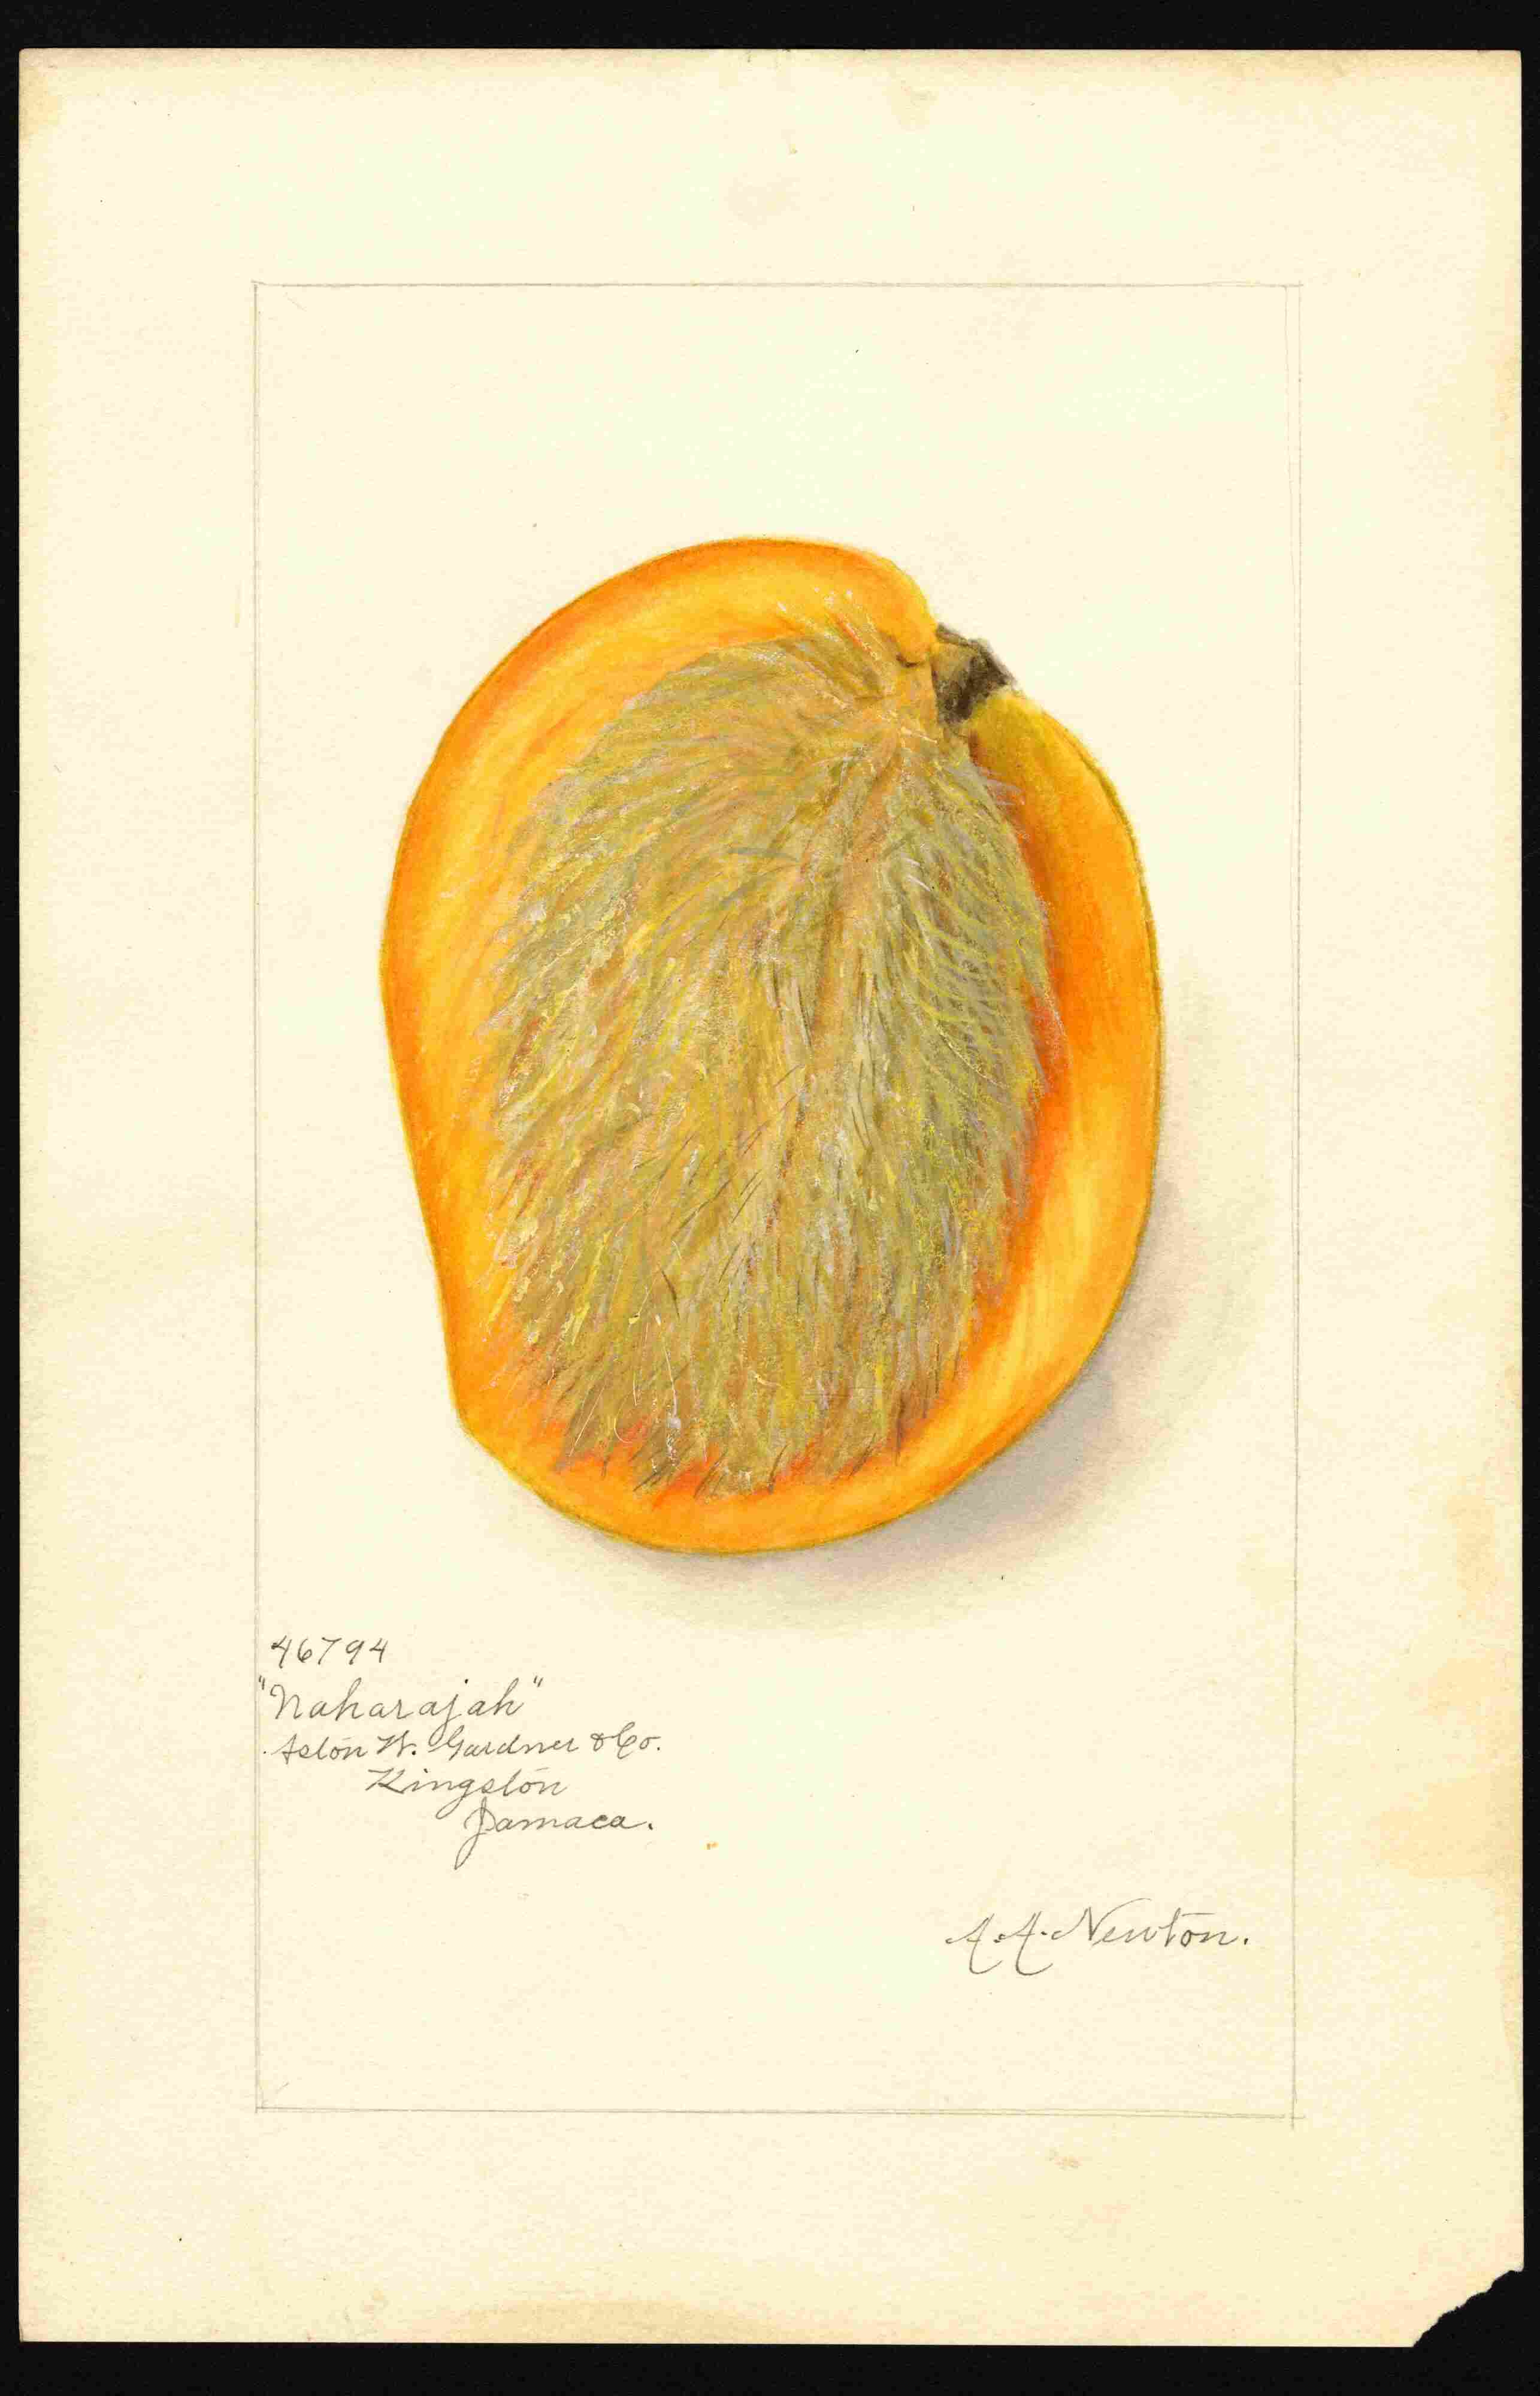 46794
"Naharajah"
Aston W. Gardner & Co.
Kingston
Jamaca.
A.A. Newton.